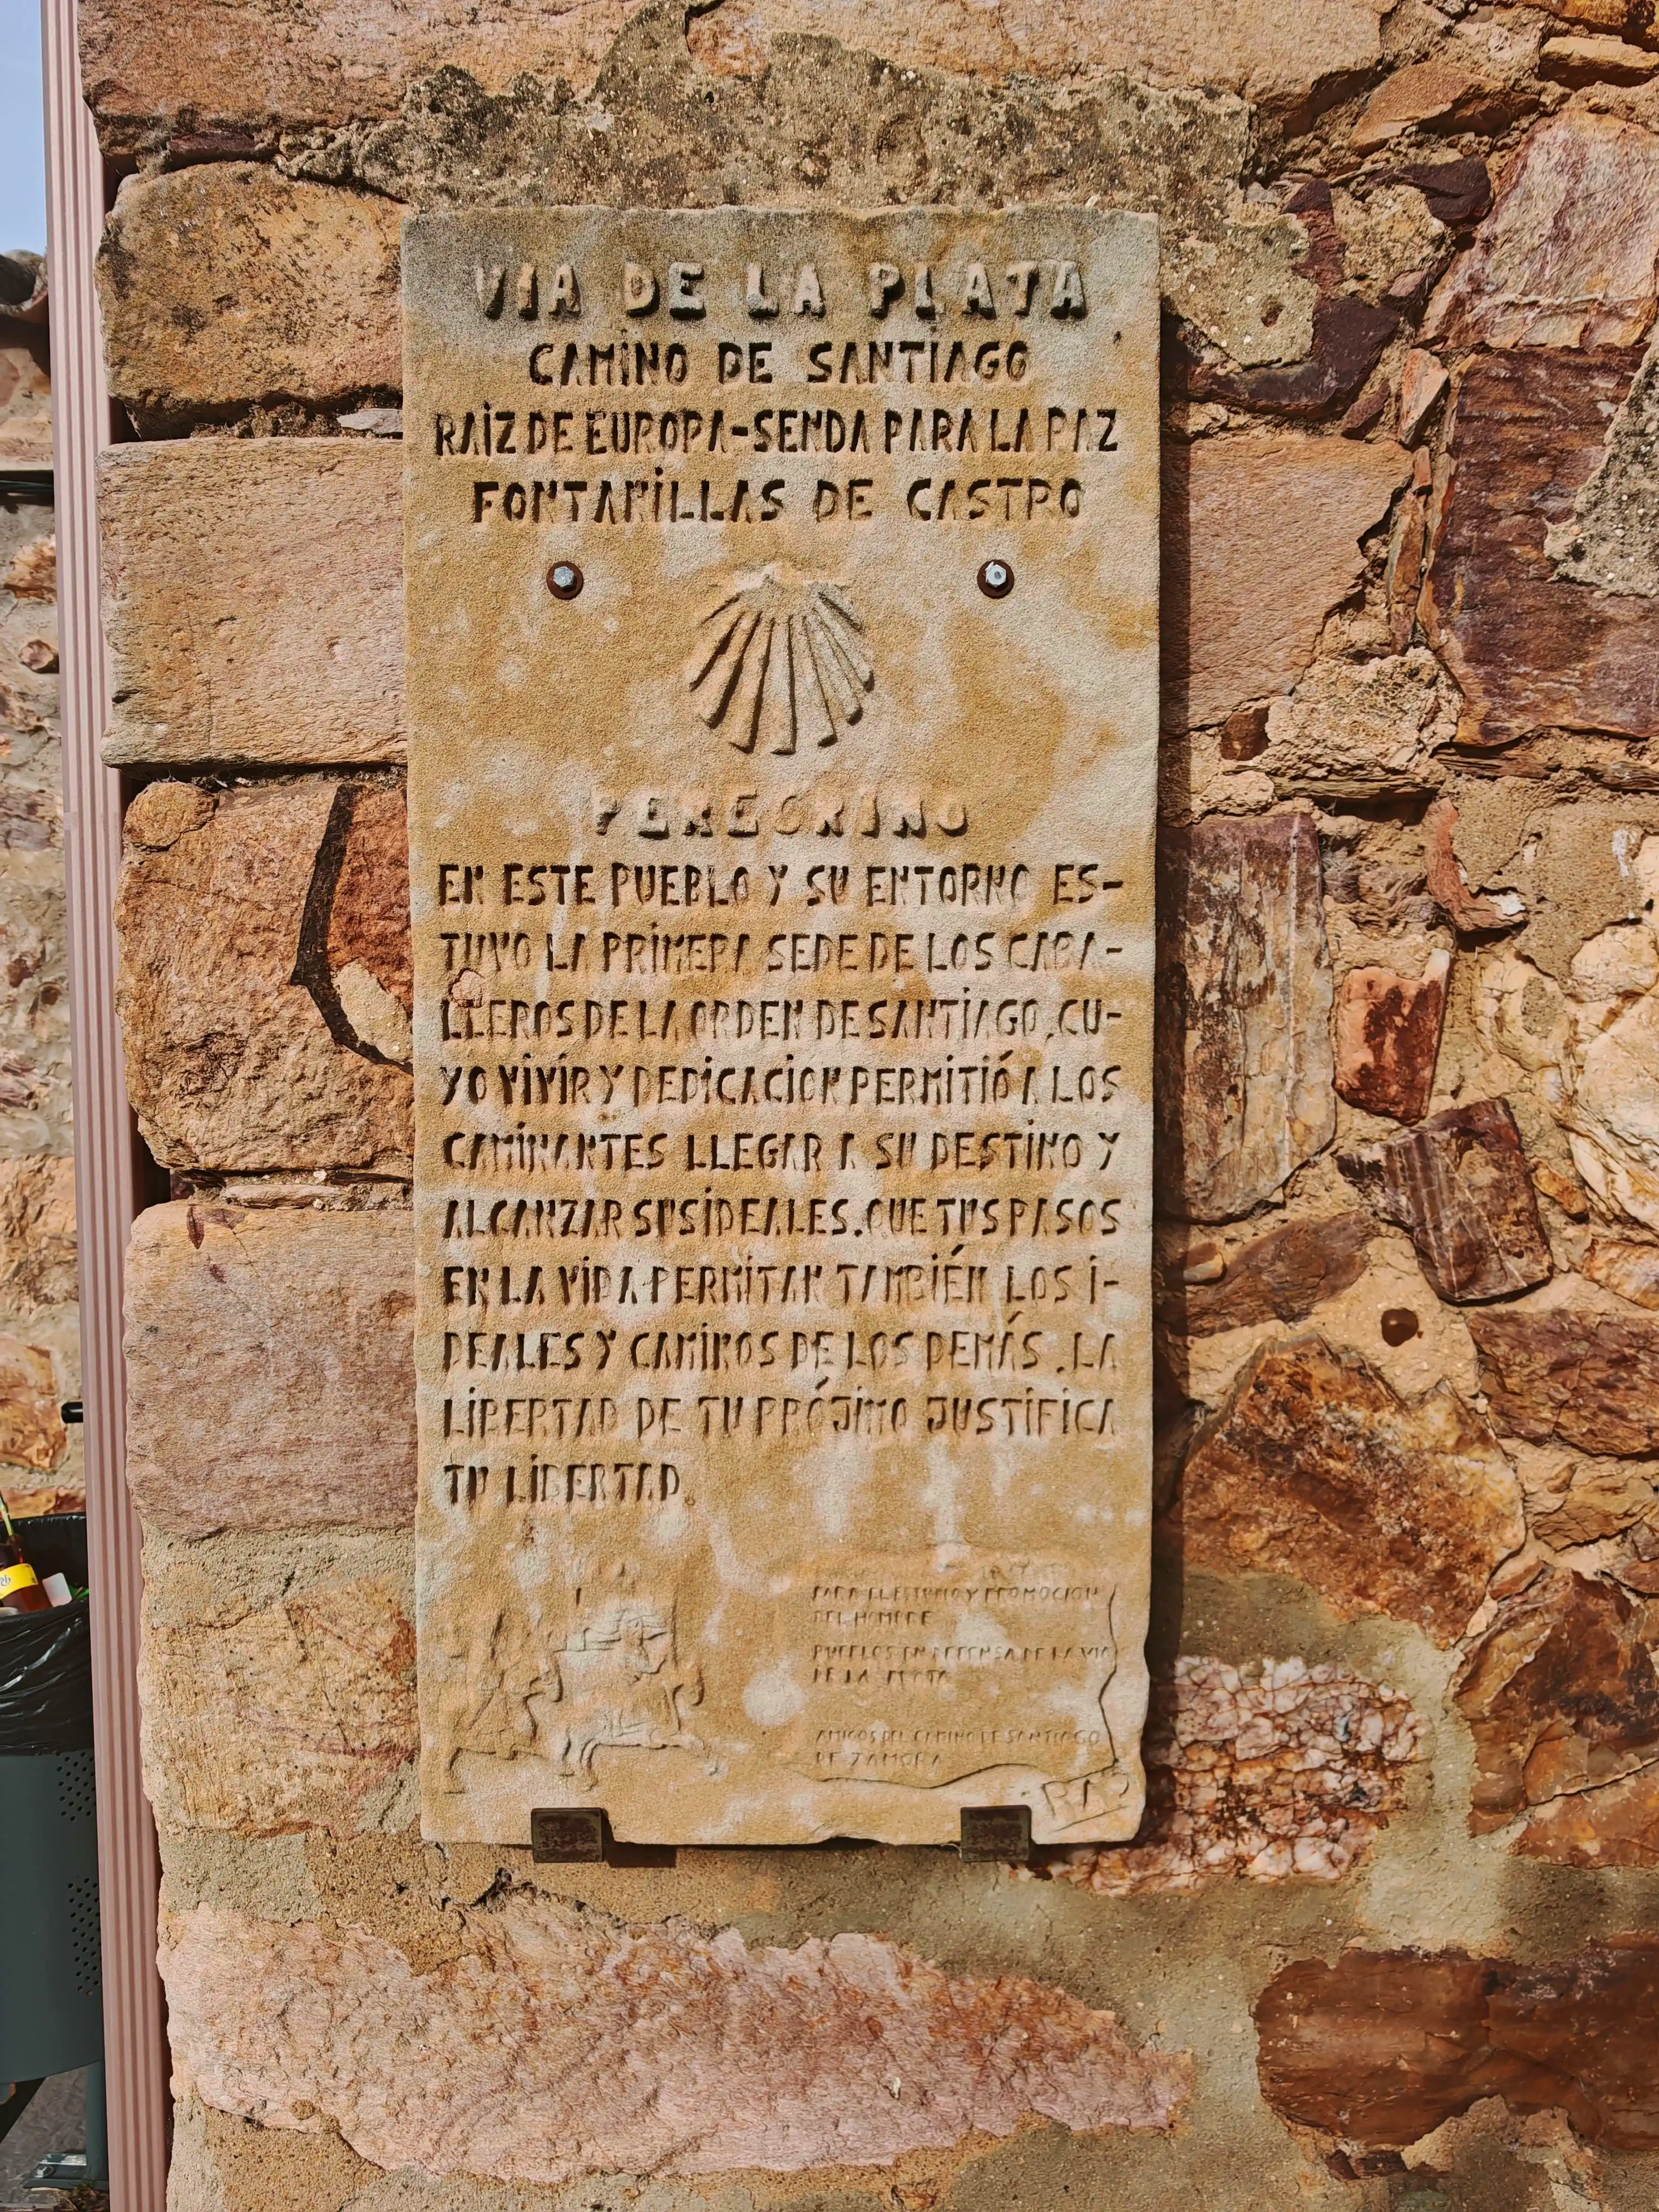 VIA DE LA PLATA
CAMINO DE SANTIAGO
RAIZ DE EUROPA-SENDA PARA LA PAZ
FONTANILLAS DE CASTRO
PEREGRINO
EN ESTE PUEBLO Y SU ENTORNO ES-
TUVO LA PRIMERA SEDE DE LOS CABA-
LLEROS DE LA ORDEN DE SANTIAGO, CU-
YO VIVIR Y DEDICACION PERMITIÓ A LOS
CAMINANTES LLEGAR A SU DESTINO Y
ALCANZAR SUS IDEALES. QUE TUS PASOS
EN LA VIDA PERMITAN TAMBIÉN LOS I-
DEALES Y CAMINOS DE LOS DEMÁS. LA
LIBERTAD DE TU PRÓJIMO JUSTIFICA
TU LIBERTAD.
PARA EL ESTUDIO Y PROMOCION
DEL HOMBRE
PUEBLOS EN DEFENSA DE LA VIA
DE LA PLATA
AMIGOS DEL CAMINO DE SANTIAGO
DE ZAMORA